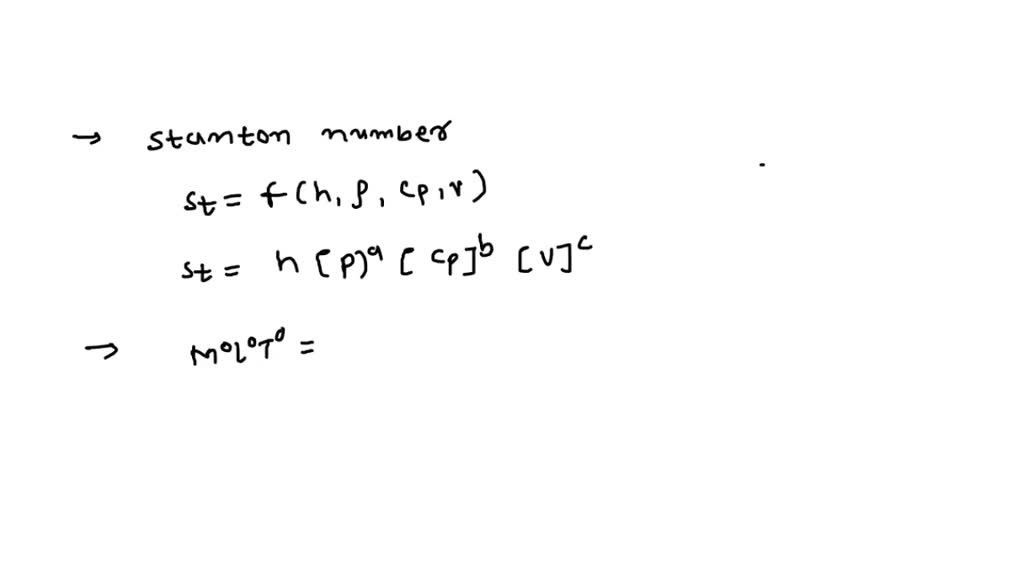 → Stanton number
St = f(h, ρ, Cp, v)
St = h [ρ)ᵃ [Cp]ᵇ [V]ᶜ
→ M⁰L⁰T⁰ =